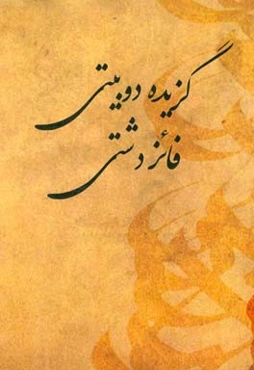 گزیده دوبیتی
فائز دشتی